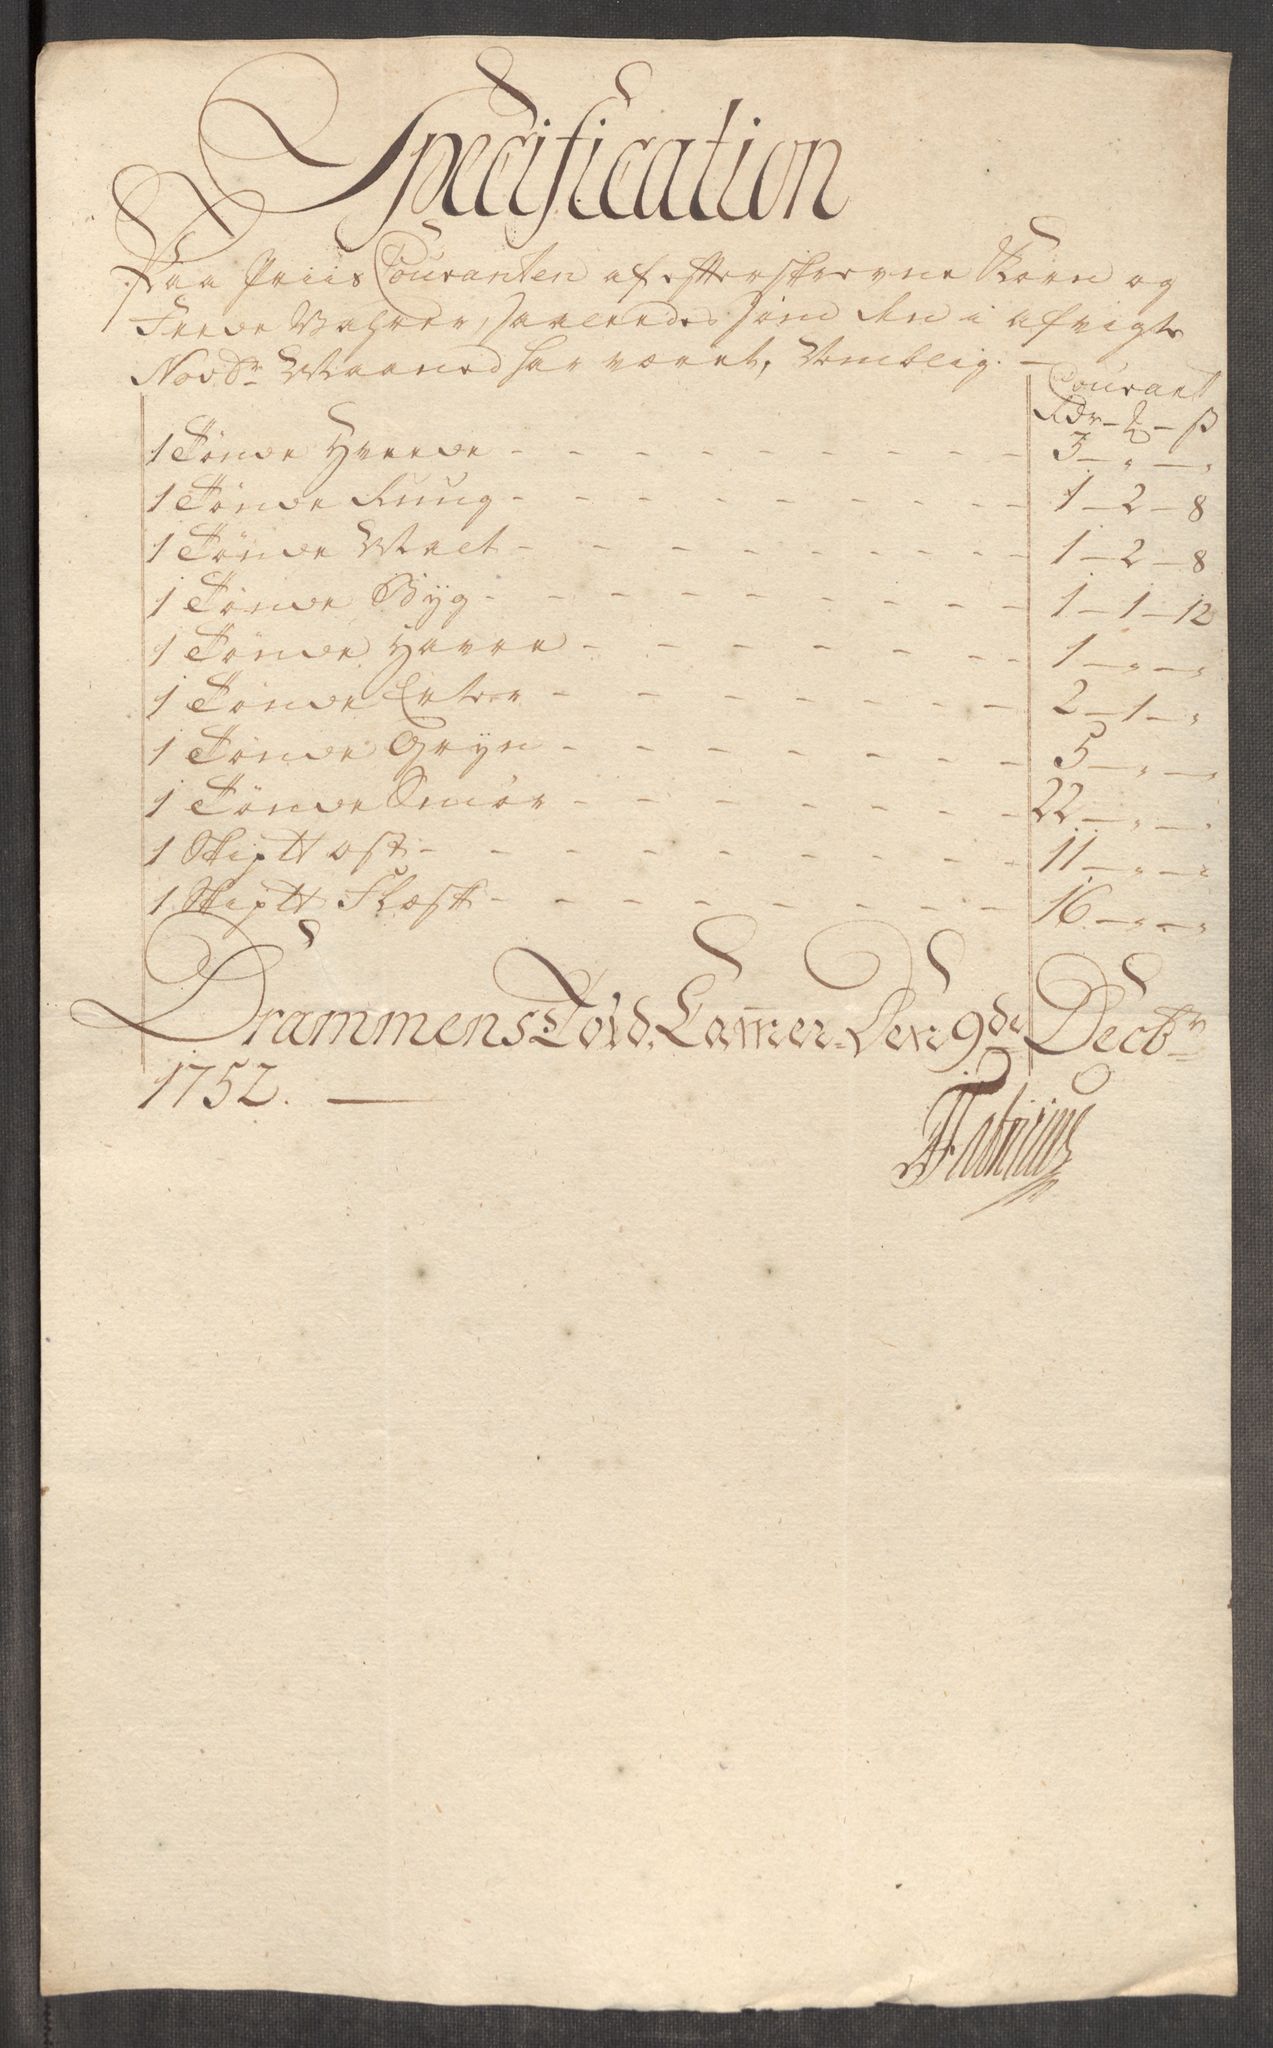 Specification
Paa Priis Couranten af efterskrevne Korn og
Feede Vahrer, saaleedes som den i afvigte
Novbr Maaned har været, Nemblig. —
Courant
Rdr — ₰ — ß
1 Tønde Hveede - - - - - - - - 3 — „ — „
1 Tønde Ruug - - - - - - - - 1 — 2 — 8
1 Tønde Malt - - - - - - - - 1 — 2 — 8
1 Tønde Byg - - - - - - - - 1 — 1 — 12
1 Tønde Havre - - - - - - - - 1 — „ — „
1 Tønde Erter - - - - - - - - 2 — 1 — „
1 Tønde Gryn - - - - - - - - 5 — „ — „
1 Tønde Smør - - - - - - - - 22 — „ — „
1 Skiptt ost - - - - - - - - 11 — „ — „
1 Skiptt Flæsk - - - - - - - - 16 — „ — „
Drammens Told Cammer Den 9de Decbr
1752. —